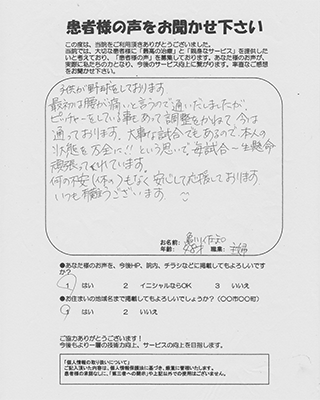 患者様の声をお聞かせ下さい
この度は、当院をご利用頂きありがとうございました。
当院では、大切な患者様に「最高の治療」と「親身なサービス」を提供した
いと考えており、「患者様の声」を募集しております。あなた様のお声が、
実際に私たちの力となり、今後のサービス向上に繋がります。率直なご感想
をお聞かせ下さい。
子供が野球をしております。
最初は腰が痛いと言うので通いだしましたが、
ピッチャーをしている事もあって調整をかねて今は
通っております。大事な試合でもあるので本人の
状態を万全に!!という思いで、毎試合一生懸命
頑張ってくれています。
何の不安(体の)もなく安心して応援しております。
いつも有難うございます。
お名前:
年齢: 職業: 主婦
●あなた様のお声を、今後HP、院内、チラシなどに掲載してもよろしいです
か?
1 はい 2 イニシャルならOK 3 いいえ
●お住まいの地域名まで掲載してもよろしいでしょうか?(〇〇市〇〇町)
1 はい 2 いいえ
ご協力ありがとうございます!
今後もより一層の技術力向上、サービスの向上を目指します。
「個人情報の取り扱いについて」
ご記入頂いた内容は、個人情報保護法に基づき、厳重に管理いたします。
患者様の承諾なしに、「第三者への開示」や上記以外での使用はございません。